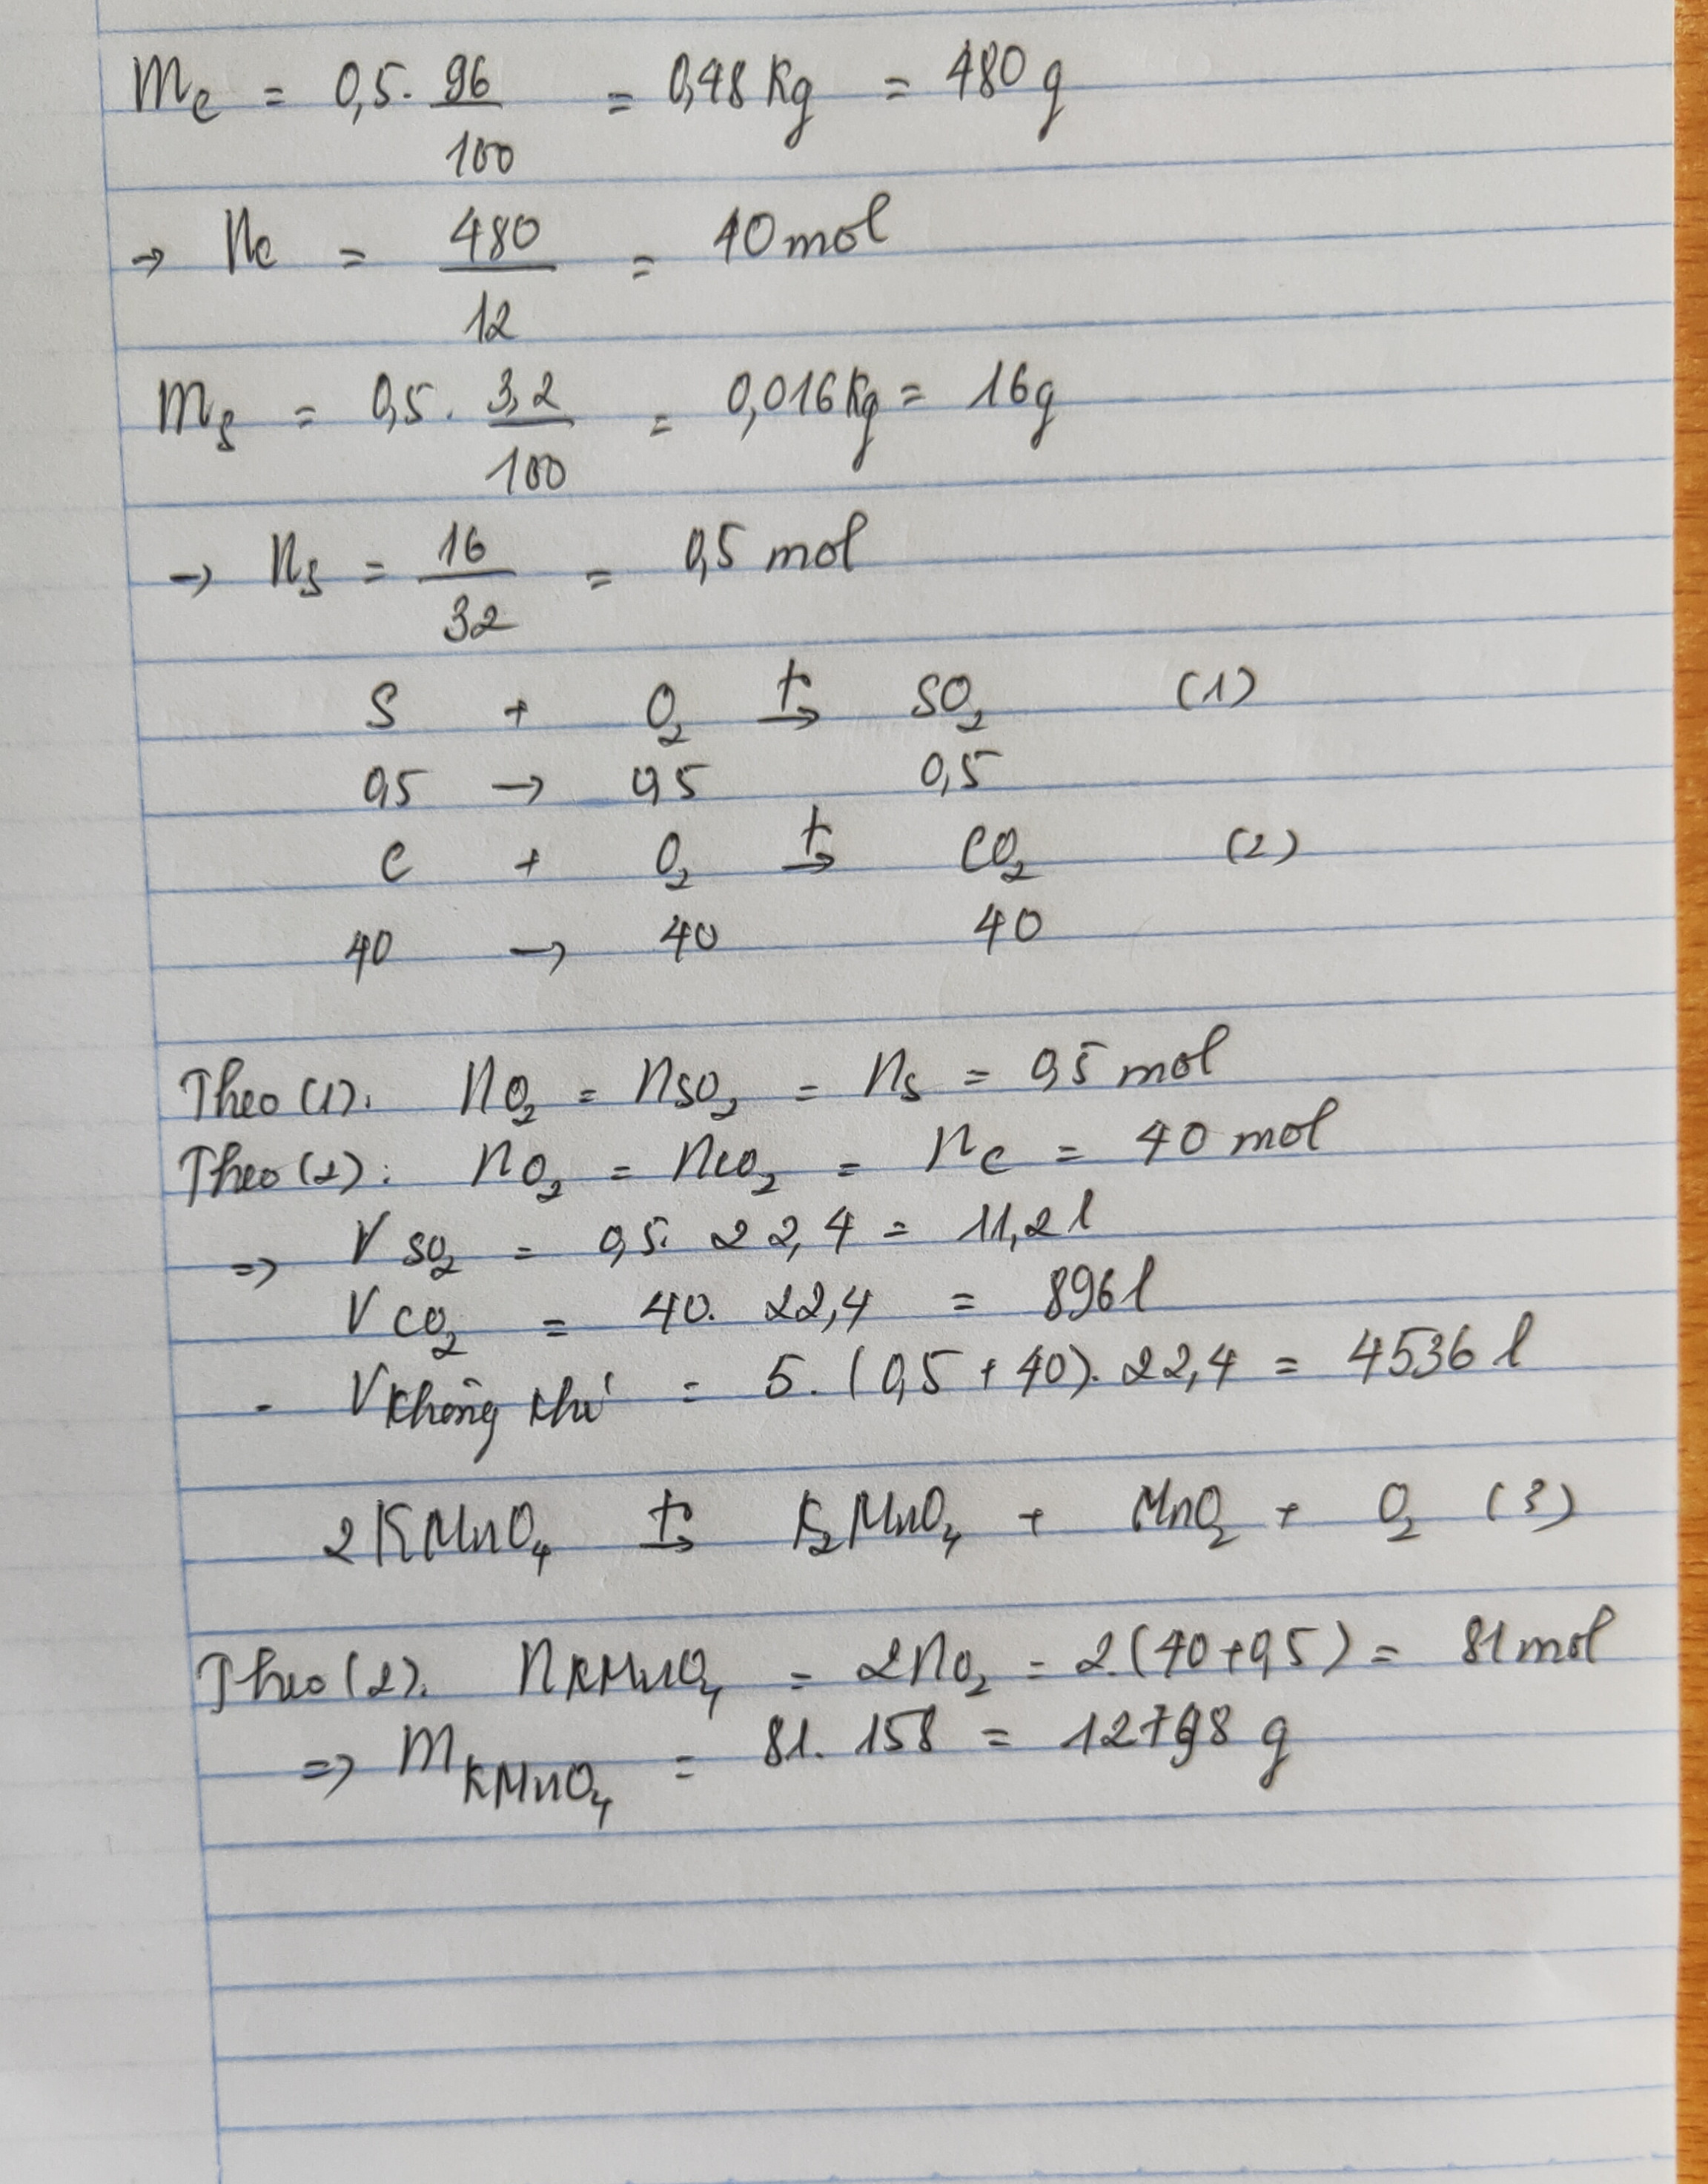 mC = 0,5 . 96/100 = 0,48 Kg = 480 g
→ nC = 480/12 = 40 mol
mS = 0,5 . 3,2/100 = 0,016 Kg = 16g
→ nS = 16/32 = 0,5 mol
S + O₂ →(t°) SO₂ (1)
0,5 → 0,5 0,5
C + O₂ →(t°) CO₂ (2)
40 → 40 40
Theo (1): nO₂ = nSO₂ = nS = 0,5 mol
Theo (2): nO₂ = nCO₂ = nC = 40 mol
=> V SO₂ = 0,5. 22,4 = 11,2 l
V CO₂ = 40. 22,4 = 896 l
- V không khí = 5. (0,5 + 40). 22,4 = 4536 l
2KMnO₄ →(t°) K₂MnO₄ + MnO₂ + O₂ (3)
Theo (2): nKMnO₄ = 2nO₂ = 2.(40+0,5) = 81 mol
=> mKMnO₄ = 81. 158 = 12798 g